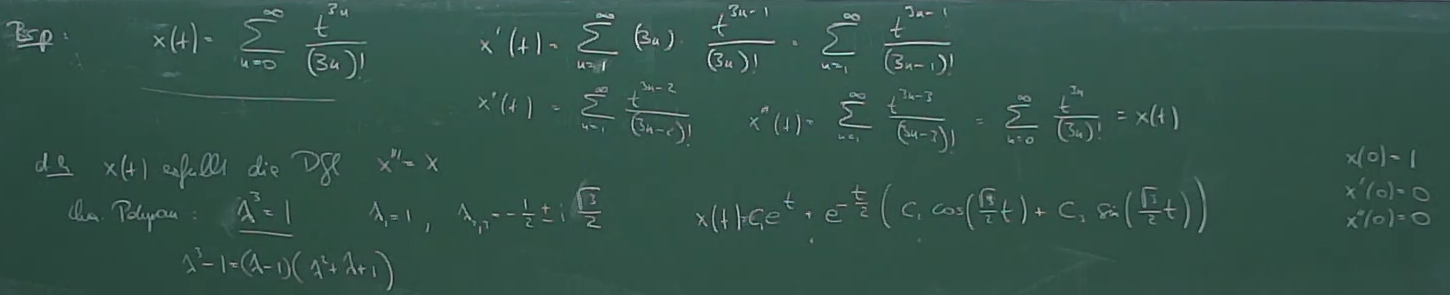 Bsp: x(t) = ∑_{n=0}^{∞} t^{3n}/(3n)!   x'(t) = ∑_{n=1}^{∞} (3n) · t^{3n-1}/(3n)! = ∑_{n=1}^{∞} t^{3n-1}/(3n-1)!
x''(t) = ∑_{n=1}^{∞} t^{3n-2}/(3n-2)!   x'''(t) = ∑_{n=1}^{∞} t^{3n-3}/(3n-3)! = ∑_{n=0}^{∞} t^{3n}/(3n)! = x(t)
d.h. x(t) erfüllt die DGl x''' = x
cha. Polynom: λ^3 = 1   λ_1 = 1, λ_{2,3} = -1/2 ± i √3/2   x(t) = C_1 e^t + e^{-t/2} ( C_2 cos(√3/2 t) + C_3 sin(√3/2 t) )
λ^3 - 1 = (λ-1)(λ^2 + λ + 1)
x(0) = 1
x'(0) = 0
x''(0) = 0